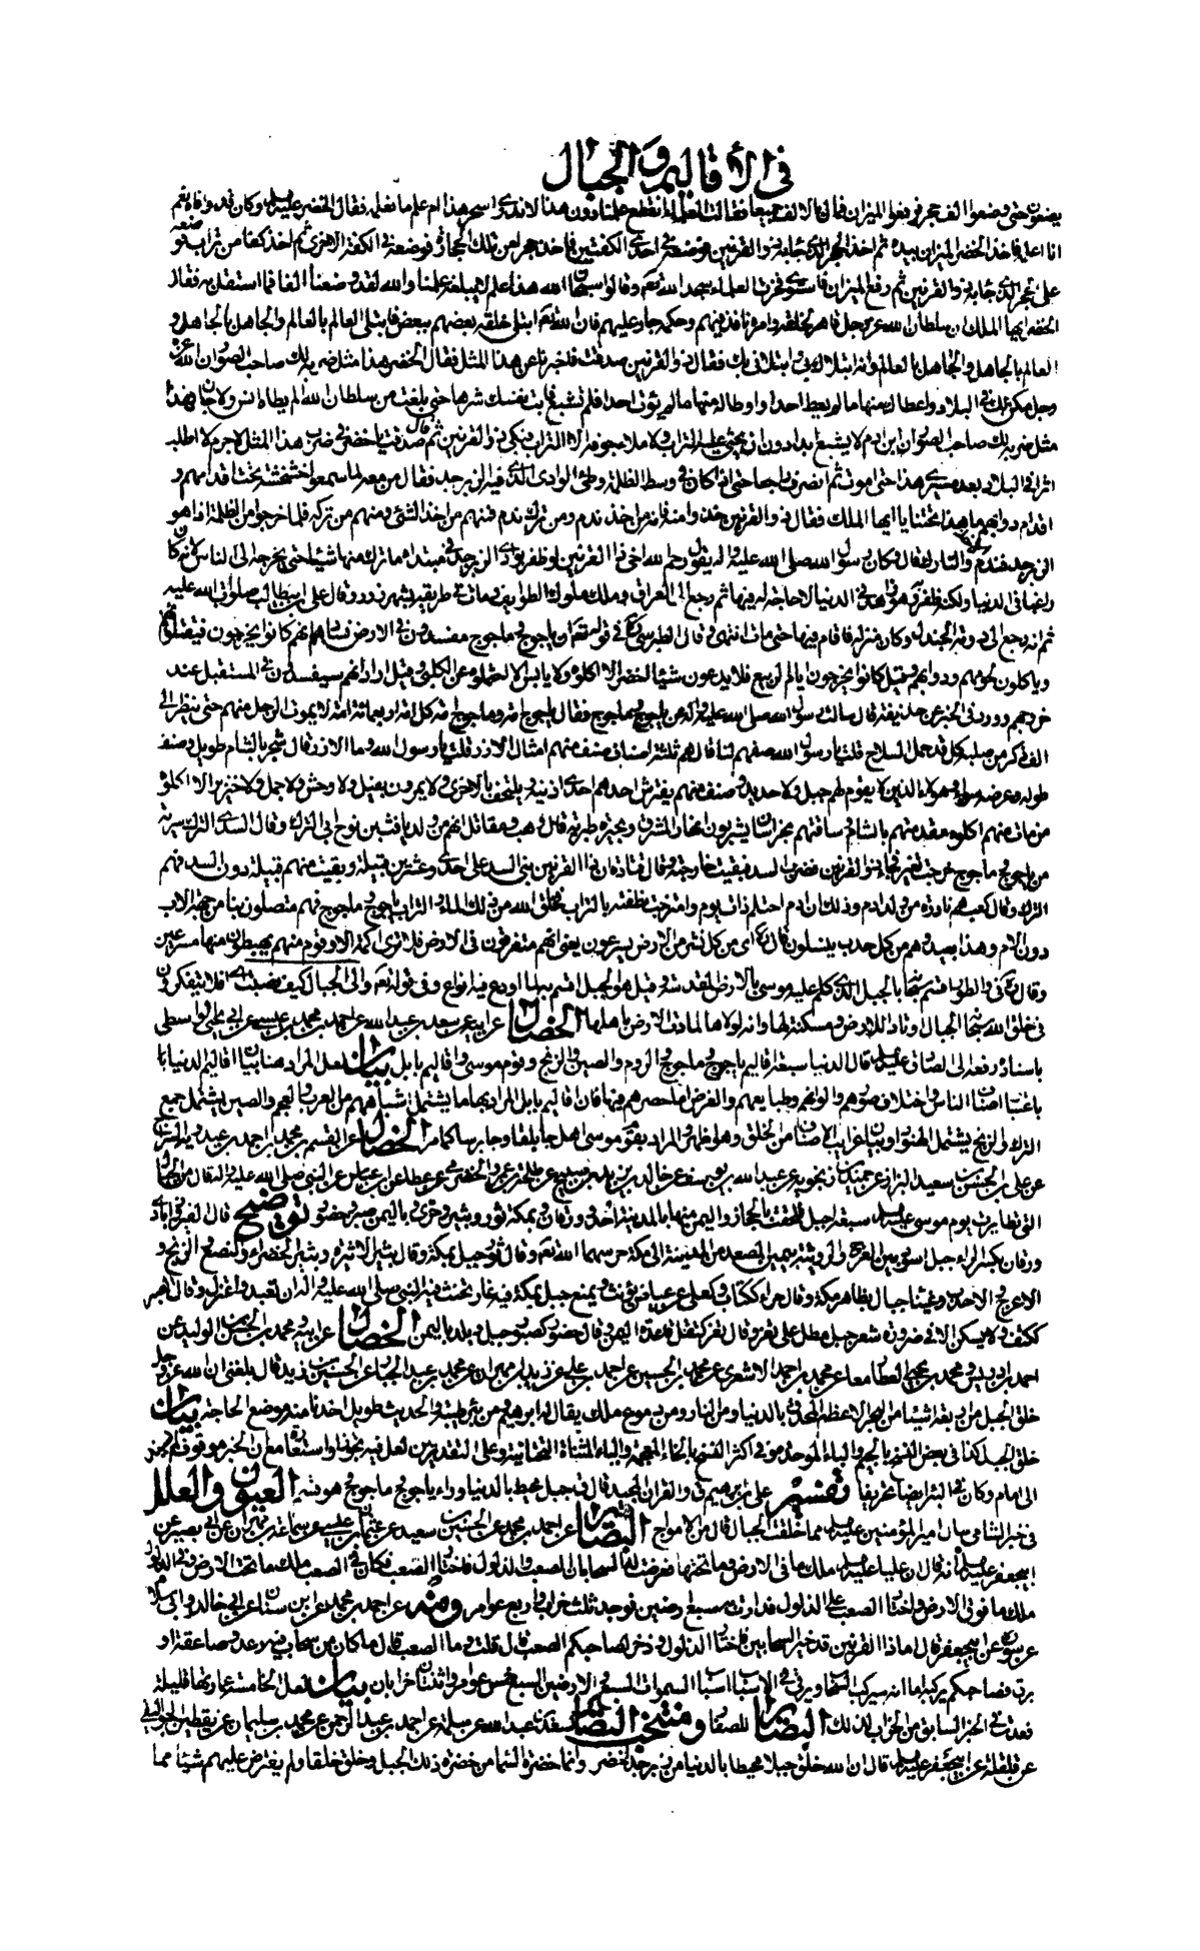 في الأقاليم والجبال
يضعون حتى وضعوا الف حجر فرفعوا الميزان فمال بالالف جميعا فقالت العلماء انقطع علمنا دون هذا لا ندري اسحر هذا ام علم ما نعلمه فقال الخضر وكان قد وافاه نعم
انا اعلمه فاخذ الخضر الميزان بيده ثم اخذ الحجر الذي جاء به ذو القرنين فوضعه في احدى الكفتين فاخذ حجرا من تلك الحجارة فوضعه في الكفة الاخرى ثم اخذ كفا من تراب فوضعه
على الحجر الذي جاء به ذو القرنين ثم رفع الميزان فاستوى فخرت العلماء سجدا لله تعالى وقالوا سبحان الله هذا علم لا يبلغه علمنا والله لقد وضعنا الفا فما استقل به فقال
الخضر ايها الملك ان سلطان الله عز وجل قاهر لخلقه وامره نافذ فيهم وحكمه جار عليهم فان الله تعالى ابتلى خلقه بعضهم ببعض فابتلى العالم بالعالم والجاهل بالجاهل و
العالم بالجاهل والجاهل بالعالم وانه ابتلاني بك وابتلاك بي فقال ذو القرنين صدقت فاخبرنا عن هذا المثل فقال الخضر هذا مثل ضربه لك صاحب الصور ان الله عز
وجل مكن لك في البلاد واعطاك منها ما لم يعط احدا واوطأك منها ما لم يوطئ احدا فلم تشبع فابت نفسك شرها حتى بلغت من سلطان الله ما لم يطأه انس ولا جان فهذا
مثل ضربه لك صاحب الصور ان ابن ادم لا يشبع ابدا دون ان يحثى عليه التراب ولا يملأ جوفه الا التراب فبكى ذو القرنين ثم قال صدقت يا خضر في ضرب هذا المثل لا جرم لا اطلب
اثرا في البلاد بعد مسيري هذا حتى اموت ثم انصرف راجعا حتى اذا كان في وسط الظلمة وطئ الوادي الذي فيه الزبرجد فقال من معه لما سمعوا خشخشة تحت اقدامهم و
اقدام دوابهم ما هذا تحتنا يا ايها الملك فقال ذو القرنين خذوا منه فانه من اخذ ندم ومن ترك ندم فمنهم من اخذ الشيء ومنهم من تركه فلما خرجوا من الظلمة اذا هو
الزبرجد فندم الاخذ والتارك قال وكان رسول الله صلى الله عليه وآله يقول رحم الله اخي ذا القرنين لو ظفر بوادي الزبرجد في مبتداه ما ترك منها شيئا حتى يخرجه الى الناس لانه كان
راغبا في الدنيا ولكنه ظفر به وهو زاهد في الدنيا لا حاجة له فيها ثم رجع الى العراق وملك ملوك الطوائف ومات في طريقه بشهرزور وقال علي بن ابي طالب صلوات الله عليه
ثم انه رجع الى دومة الجندل وكان منزله فاقام فيها حتى مات انتهى وقال الطبرسي في قوله تعالى ان ياجوج وماجوج مفسدون في الارض فسادهم انهم كانوا يخرجون فيقتلونهم
وياكلون لحومهم ودوابهم وقيل كانوا يخرجون ايام الربيع فلا يدعون شيئا اخضر الا اكلوه ولا يابسا الا احتملوه عن الكلبي وقيل ارادوا انهم سيفسدون في المستقبل عند
خروجهم وورد في الخبر عن حذيفة قال سالت رسول الله صلى الله عليه وآله عن ياجوج وماجوج فقال ياجوج امة وماجوج امة كل امة اربعمائة امة لا يموت الرجل منهم حتى ينظر الى
الف ذكر من صلبه كل قد حمل السلاح قلت يا رسول الله صفهم لنا قال هم ثلثة اصناف صنف منهم امثال الارز قلت يا رسول الله وما الارز قال شجر بالشام طويل وصنف
طوله وعرضه سواء وهؤلاء الذين لا يقوم لهم جبل ولا حديد وصنف منهم يفترش احدهم احدى اذنيه ويلتحف بالاخرى ولا يمرون بفيل ولا وحش ولا جمل ولا خنزير الا اكلوه
من مات منهم اكلوه مقدمتهم بالشام وساقتهم بخراسان يشربون انهار المشرق وبحيرة طبرية قال وهب ومقاتل انهم من ولد يافث بن نوح ابي الترك وقال السدي الترك سرية
من ياجوج وماجوج خرجت تغير فجاء ذو القرنين فضرب السد فبقيت خارجه وقال قتادة ان ذا القرنين بنى السد على احدى وعشرين قبيلة وبقيت منهم قبيلة دون السد فهم
الترك وقال كعب هم نادرة من ولد ادم وذلك ان ادم احتلم ذات يوم وامتزجت نطفته بالتراب فخلق الله من ذلك الماء والتراب ياجوج وماجوج فهم متصلون بنا من جهة الاب
دون الام وهذا بعيد وهم من كل حدب ينسلون قال اي من كل نشز من الارض يسرعون يعني انهم متفرقون في الارض فلا ترى اكمة الا وقوم منهم يهبطون منها مسرعين
وقال في والطور اقسم سبحانه بالجبل الذي كلم عليه موسى بالارض المقدسة وقيل هو الجبل اقسم به لما اودع فيه انواع وفي قوله تعالى والى الجبال كيف نصبت افلا يتفكرون
في خلق الله سبحانه الجبال اوتادا للارض ومسكنة لها وانه لولاها لمادت الارض باهلها الخصال عن ابيه عن سعد بن عبد الله عن احمد بن محمد بن عيسى عن ابي يحيى الواسطي
باسناده رفعه الى الصادق قال الدنيا سبعة اقاليم ياجوج وماجوج والروم والصين والزنج وقوم موسى واقاليم بابل بيان لعل المراد هنا بيان اقاليم الدنيا با
باعتبار اصناف الناس واختلاف صورهم والوانهم وطبايعهم والغرض اما حصرهم فيها فان اقاليم بابل المراد بها ما يشتمل اشباههم من العرب والعجم والصين يشتمل جميع
الترك والزنج يشتمل الهنود او بيان غرايب الاصناف من الخلق وهو ظهر والمراد بقوم موسى اهل جابلقا وجابرسا كما مر الخصال عن القسم بن محمد بن احمد بن عبدويه السراج
عن علي بن الحسن بن سعيد البزاز عن حميد بن زنجويه عن عبد الله بن يوسف عن خالد بن يزيد بن صبيح عن طلحة بن عمرو الحضرمي عن عطا عن ابن عباس عن النبي صلى الله عليه وآله انه قال من الجبال
التي تطايرت يوم موسى سبعة اجبل فلحقت بالحجاز واليمن منها بالمدينة احد وورقان وبمكة ثور وثبير وحرى وباليمن صبر وحضور توضيح قال الفيروزابادي
ورقان بكسر الراء جبل اسود بين العرج والرويثة بيمين المصعد من المدينة الى مكة حرسهما الله تعالى وقال ثور جبل بمكة وقال ثبير الاثبرة وثبير الخضراء والنصع والزنج و
الاعرج والاحدب وغينا جبال بظاهر مكة وقال حراء ككتاب وكعلى عن عياض ويؤنث ويمنع جبل بمكة فيه غار تحنث فيه النبي صلى الله عليه وآله
ككتف ولا يسكن الا في ضرورة شعر جبل مطل على تعز وقال تعز كتقل قاعدة اليمن وقال حضور كصبور جبل وبلد باليمن الخصال عن ابيه ومحمد بن الحسن بن الوليد عن
احمد بن ادريس ومحمد بن يحيى العطار معا عن محمد بن احمد الاشعري عن محمد بن الحسين عن احمد بن علي عن محمد بن عبد الجبار عن الحسين بن زيد قال بلغني ان الله عز وجل
خلق الجبل من اربعة اشياء من البحر الاعظم المحدق بالدنيا ومن النار ومن دموع ملك يقال له ابرهيم ومن بئر طيبة والحديث طويل اخذنا منه موضع الحاجة بيان
خلق الجبل كذا في بعض النسخ بالجيم والباء الموحدة وفي اكثر النسخ بالخاء المعجمة والياء المثناة التحتانية وعلى التقديرين لعل فيه تجوزا واستعارة مع ان الخبر موقوف لم يسند
الى امام وكان في البئر ايضا تحريفا تفسير علي بن ابرهيم ق والقران المجيد قال ق جبل محيط بالدنيا وراء ياجوج وماجوج وهو قسم العيون والعلل
في خبر الشامي سال امير المؤمنين مما خلقت الجبال قال من الامواج البصائر عن احمد بن محمد عن الحسين بن سعيد عن عثمان بن عيسى عن سماعة بن مهران عن ابي بصير عن
ابي جعفر انه قال ان عليا ملك ما في الارض وما تحتها فعرضت له السحابان الصعب والذلول فاختار الصعب فكان في الصعب ملك ما تحت الارض وفي الذلول
ملك ما فوق الارض واختار الصعب على الذلول فدارت به سبع ارضين فوجد ثلث خراب واربع عوامر ومنه عن احمد بن محمد عن ابن سنان عن ابي خالد وابي سلام
عن سورة عن ابي جعفر قال اما ذا القرنين قد خير السحابين فاختار الذلول وذخر لصاحبكم الصعب قال قلت وما الصعب قال ما كان من سحاب فيه رعد وصاعقة او
برق فصاحبكم يركبه اما انه سيركب السحاب ويرقى في الاسباب اسباب السموات السبع والارضين السبع خمس عوامر واثنتان خرابان بيان لعل الخامسة عمارتها قليلة
فعدت في الخبر السابق من الخراب لذلك البصائر للصفار ومنتخب البصائر لسعد بن عبد الله عن سلمة عن احمد بن عبد الرحمن عن محمد بن سليمان عن يقطين الجواليقي
عن قلقلة عن ابي جعفر قال ان الله خلق جبلا محيطا بالدنيا من زبرجد اخضر وانما خضرة السماء من خضرة ذلك الجبل وخلق خلقا ولم يفترض عليهم شيئا مما